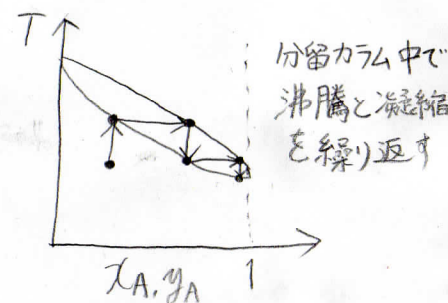 T
分留カラム中で
沸騰と凝縮
を繰り返す
x_A, y_A
1